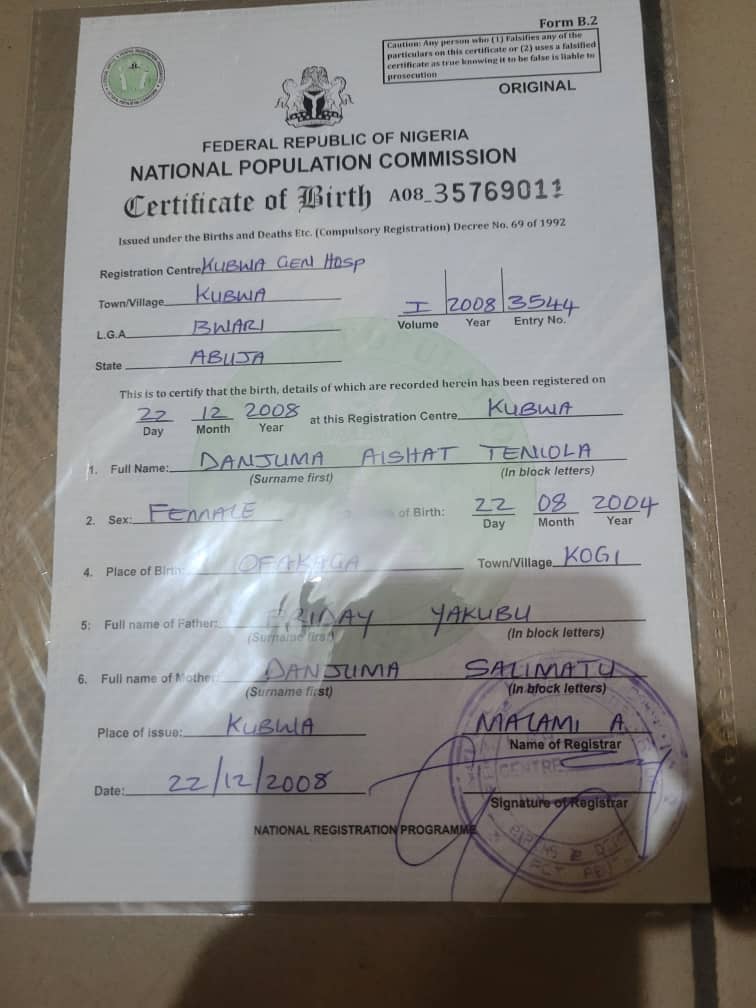 Form B.2
Caution: Any person who (1) Falsifies any of the
particulars on this certificate or (2) uses a falsified
certificate as true knowing it to be false is liable to
prosecution
ORIGINAL
FEDERAL REPUBLIC OF NIGERIA
NATIONAL POPULATION COMMISSION
Certificate of Birth A08_35769011
Issued under the Births and Deaths Etc. (Compulsory Registration) Decree No. 69 of 1992
Registration Centre KUBWA GEN HOSP
Town/Village KUBWA
I 2008 3544
Volume Year Entry No.
L.G.A BWARI
State ABUJA
This is to certify that the birth, details of which are recorded herein has been registered on
22 12 2008 at this Registration Centre KUBWA
Day Month Year
1. Full Name: DANJUMA AISHAT TENIOLA
(Surname first) (In block letters)
2. Sex: FEMALE of Birth: 22 08 2004
Day Month Year
4. Place of Birth: OFAKAGA Town/Village KOGI
5: Full name of Father: FRIDAY YAKUBU
(Surname first) (In block letters)
6. Full name of Mother: DANJUMA SALIMATU
(Surname first) (In block letters)
Place of issue: KUBWA MALAMI A.
Name of Registrar
Date: 22/12/2008
Signature of Registrar
NATIONAL REGISTRATION PROGRAMME
CENTRE